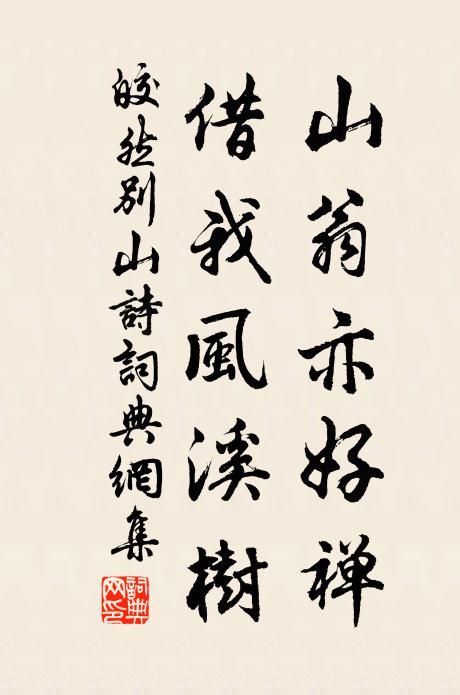 山翁亦好禅
借我風溪樹
皎然别山詩詞典網集
詞典網印